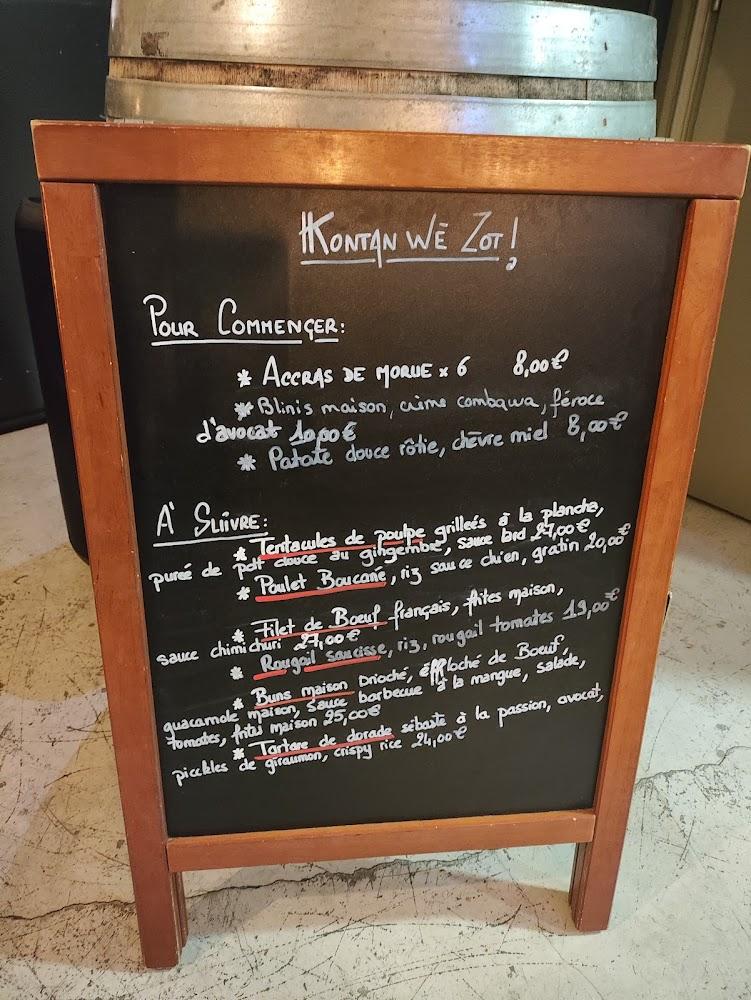 KONTAN WÉ ZOT!
POUR COMMENÇER:
* ACCRAS DE MORUE x 6 8,00€
* Blinis maison, crème combawa, féroce
d'avocat 10,00€
* Patate douce rôtie, chèvre miel 8,00€
À SUIVRE:
* Tentacules de poulpe grilleés à la plancha,
pureé de pdt douce au gingembre, sauce bard 27,00€
* Poulet Boucane, riz sauce chien, gratin 20,00€
* Filet de Boeuf français, frites maison,
sauce chimichuri 27,00€
* Rougail saucisse, riz, rougail tomates 19,00€
* Buns maison brioché, effloché de Boeuf,
guacamole maison, sauce barbecue à la mangue, salade,
tomates, frites maison 25,00€
* Tartare de dorade sébaste à la passion, avocat,
picckles de giraumon, crispy rice 24,00€